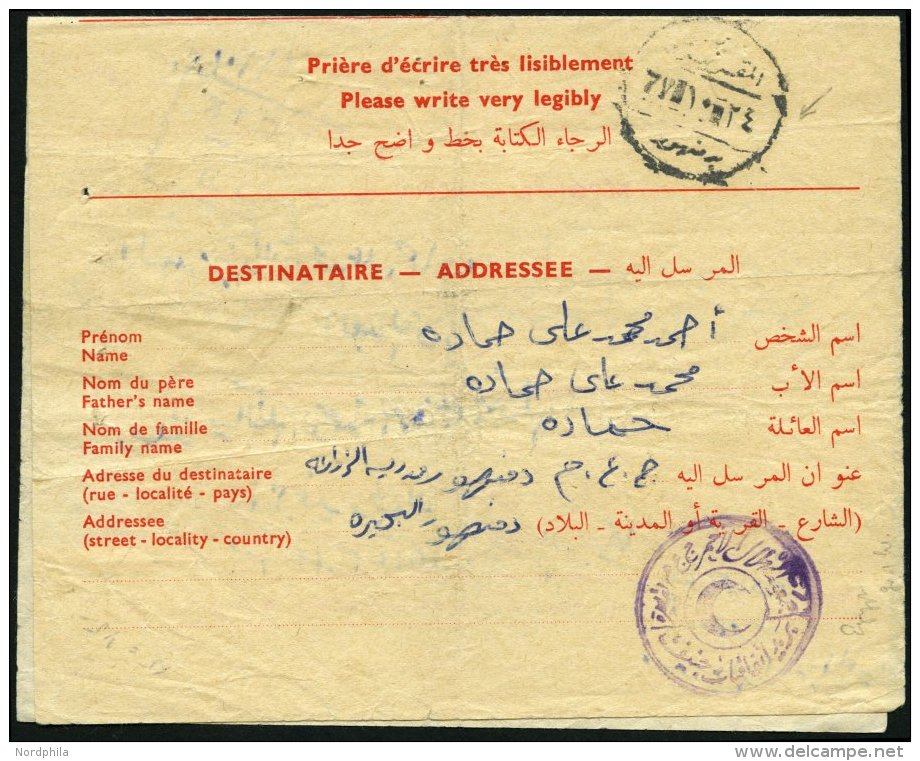 Prière d'écrire très lisiblement
Please write very legibly
الرجاء الكتابة بخط و اضح جدا
٢٤
DESTINATAIRE — ADDRESSEE — المر سل اليه
Prénom
Name
أحمد محمد على حماده
اسم الشخص
Nom du père
Father's name
محمد على حماده
اسم الأب
Nom de famille
Family name
حماده
اسم العائلة
Adresse du destinataire
(rue - localité - pays)
ج.ع.م دمنهور
عنو ان المر سل اليه
Addressee
(street - locality - country)
دمنهور البحيره
(الشارع - القرية أو المدينة - البلاد)
Nordphila
www.delcampe.net